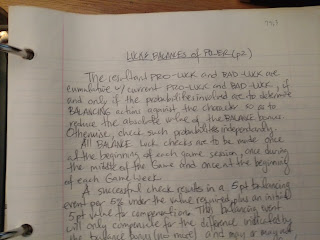 LUCK & BALANCES of POWER (p2)
The resultant PRO-LUCK and BAD-LUCK are
cumulative w/ current PRO-LUCK and BAD-LUCK, if
and only if the probabilities involved are to determine
BALANCING actions against the character so as to
reduce the absolute value of the BALANCE bonus.
Otherwise, check such probabilities independently.
All BALANCE luck checks are to be made once
at the beginning of each game session, once during
the middle of the Game and once at the beginning
of each Game Week.
A successful check results in a 5pt balancing
event per 5% under the value required, plus an initial
5pt value for compensations. This balancing event
will only compensate for the difference indicated by
the balance bonus (no more) and may or may not